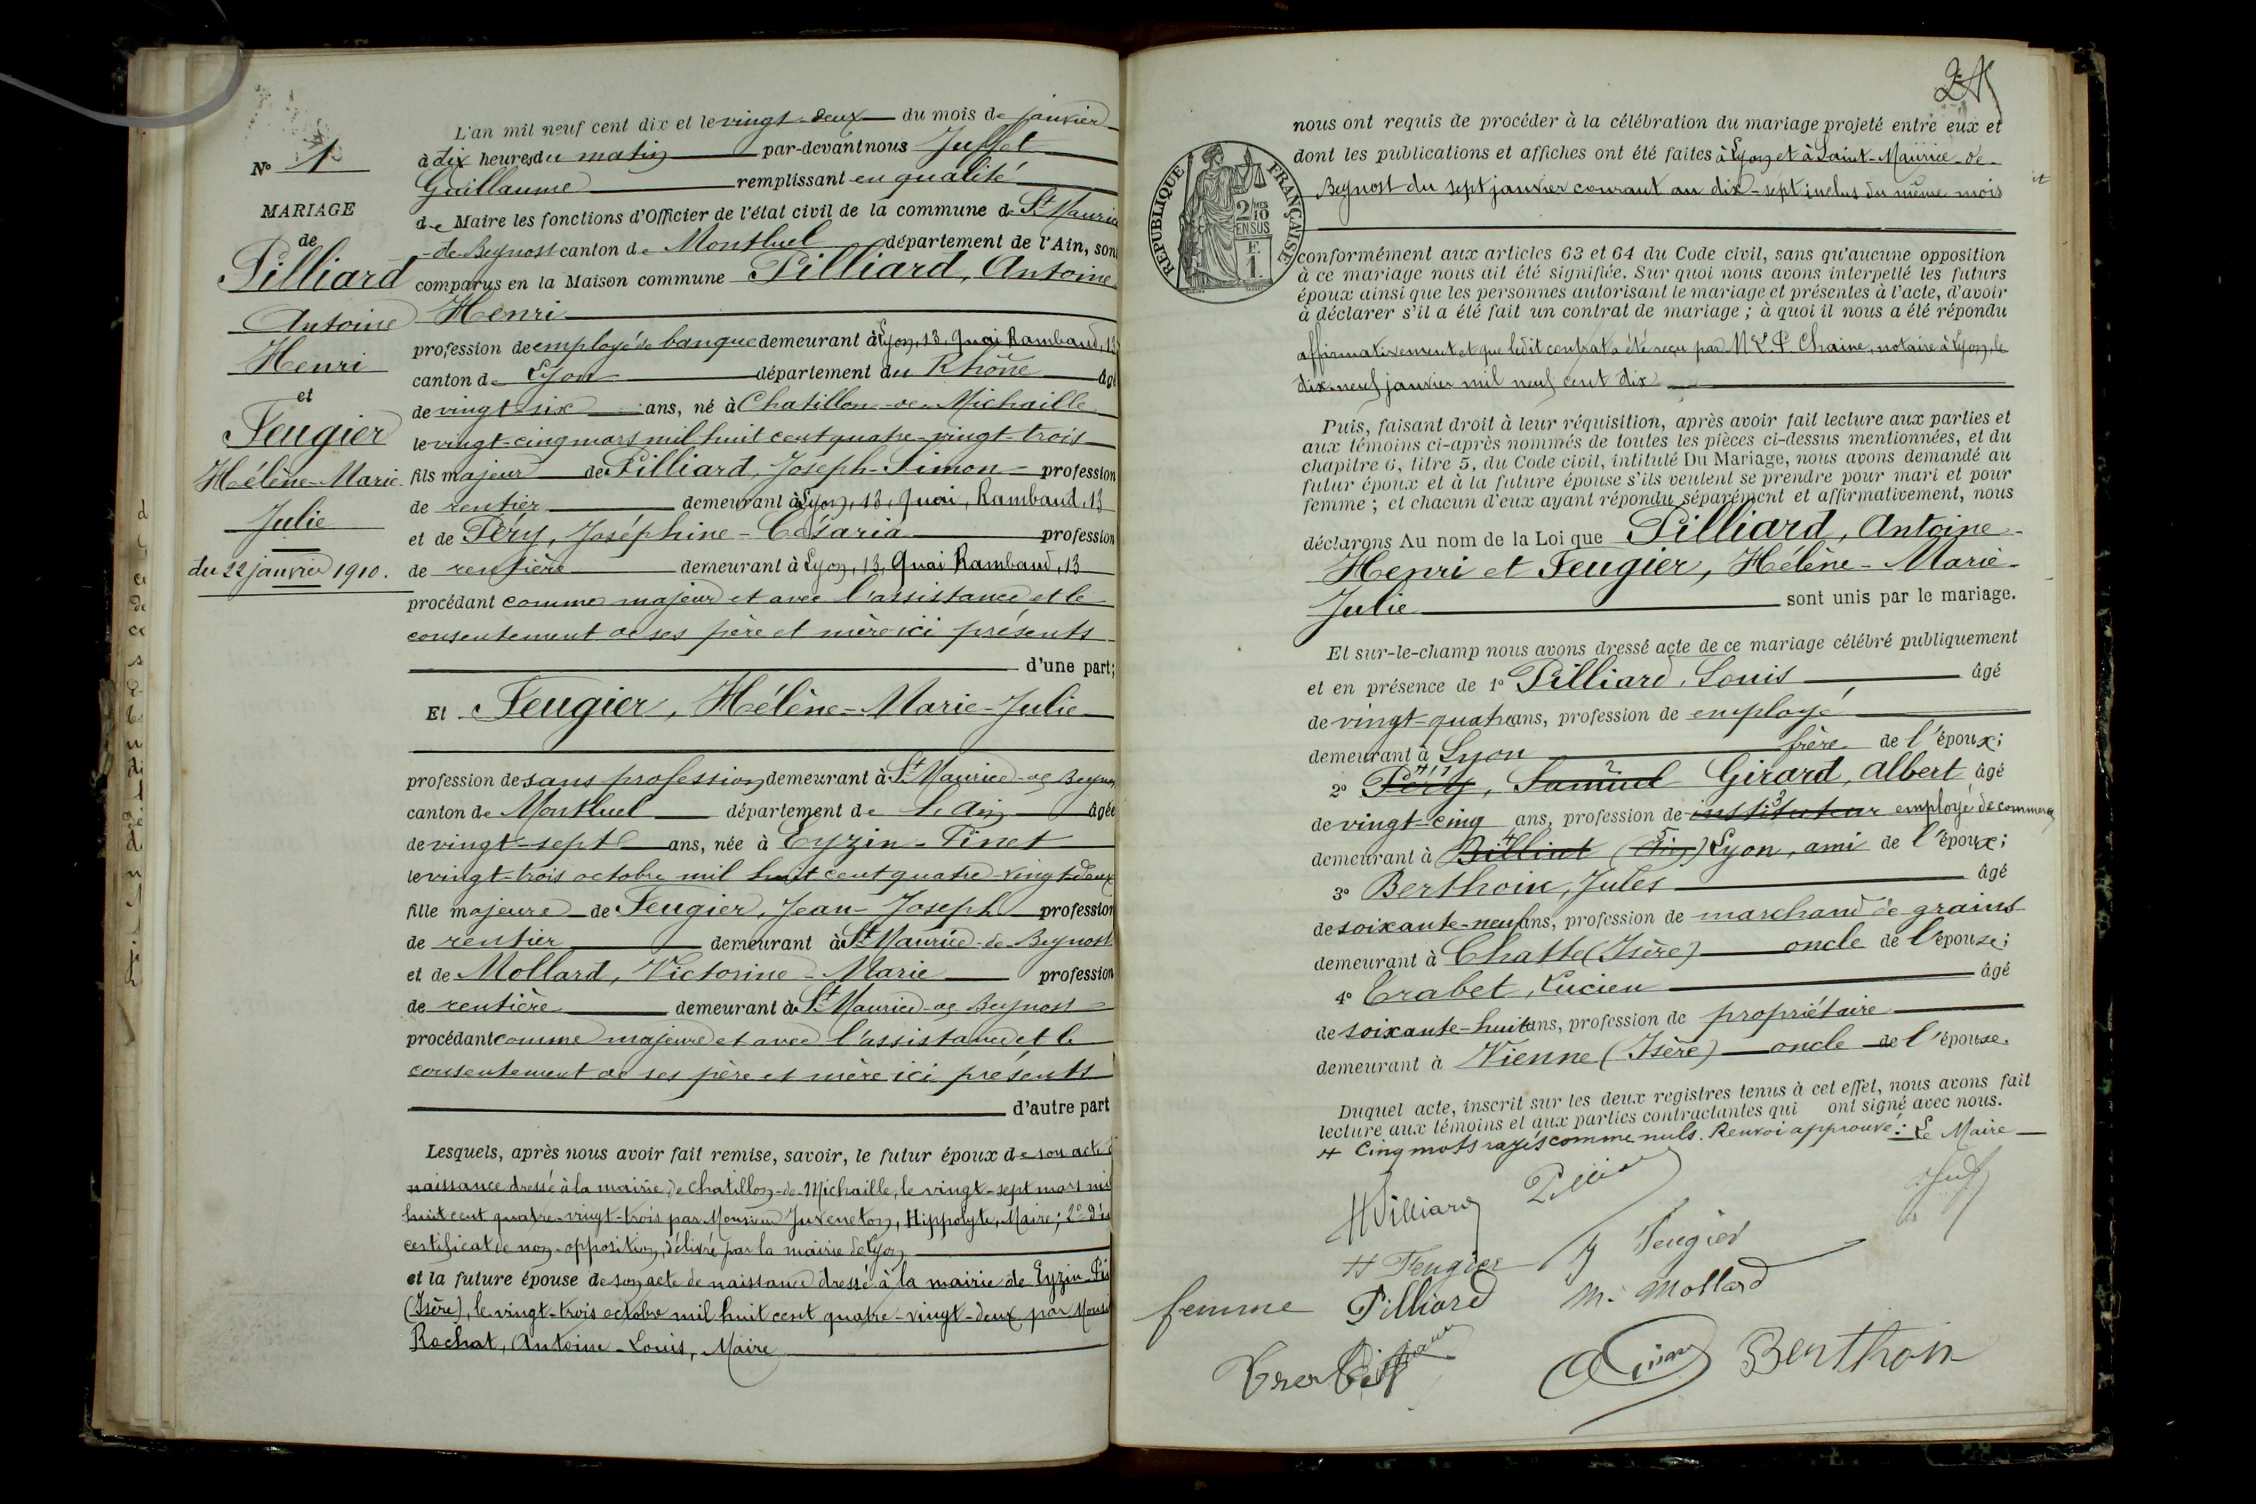 N° 1
MARIAGE
de
Pilliard
Antoine
Henri
et
Feugier
Hélène-Marie-
Julie
du 22 janvier 1910.
L'an mil neuf cent dix et le vingt-deux du mois de janvier
à dix heures du matin par-devant nous Juffet
Guillaume remplissant en qualité
de Maire les fonctions d'Officier de l'état civil de la commune de St Maurice
-de-Beynost canton de Montluel département de l'Ain, sont
comparus en la Maison commune Pilliard, Antoine
Henri
profession de employé de banque demeurant à Lyon, 13, Quai Rambaud, 13
canton de Lyon département du Rhône âgé
de vingt-six ans, né à Chatillon-de-Michaille
le vingt-cinq mars mil huit cent quatre-vingt-trois
fils majeur de Pilliard, Joseph-Simon- profession
de rentier demeurant à Lyon, 13, Quai, Rambaud, 13
et de Péry, Joséphine-Césaria profession
de rentière demeurant à Lyon, 13, Quai Rambaud, 13
procédant comme majeur et avec l'assistance et le
consentement de ses père et mère ici présents
d'une part;
Et Feugier, Hélène-Marie-Julie
profession de sans profession demeurant à St Maurice-de Beynost
canton de Montluel département de L'Ain âgée
de vingt-sept ans, née à Eyzin-Pinet
le vingt-trois octobre mil huit cent quatre-vingt-deux
fille majeure de Feugier, Jean-Joseph profession
de rentier demeurant à St Maurice-de-Beynost
et de Mollard, Victorine-Marie profession
de rentière demeurant à St Maurice-de Beynost
procédant comme majeure et avec l'assistance et le
consentement de ses père et mère ici présents
d'autre part
Lesquels, après nous avoir fait remise, savoir, le futur époux de son acte d
naissance dressé à la mairie de Chatillon-de-Michaille, le vingt-sept mars mil
huit cent quatre-vingt-trois par Monsieur Juveneton, Hippolyte, Maire; 2° d'un
certificat de non-opposition, délivré par la mairie de Lyon
et la future épouse de son acte de naissance dressé à la mairie de Eyzin-Pi
(Isère), le vingt-trois octobre mil huit cent quatre-vingt-deux par Monsi
Rochat, Antoine-Louis, Maire
24
RÉPUBLIQUE FRANÇAISE
2/10 EN SUS
F. 1.
nous ont requis de procéder à la célébration du mariage projeté entre eux et
dont les publications et affiches ont été faites à Lyon et à Saint-Maurice-de-
Beynost du sept janvier courant au dix-sept inclus du même mois
conformément aux articles 63 et 64 du Code civil, sans qu'aucune opposition
à ce mariage nous ait été signifiée. Sur quoi nous avons interpellé les futurs
époux ainsi que les personnes autorisant le mariage et présentes à l'acte, d'avoir
à déclarer s'il a été fait un contrat de mariage; à quoi il nous a été répondu
affirmativement et que ledit contrat a été reçu par M L. P. Chaine, notaire à Lyon, le
dix-neuf janvier mil neuf cent dix
Puis, faisant droit à leur réquisition, après avoir fait lecture aux parties et
aux témoins ci-après nommés de toutes les pièces ci-dessus mentionnées, et du
chapitre 6, titre 5, du Code civil, intitulé Du Mariage, nous avons demandé au
futur époux et à la future épouse s'ils veulent se prendre pour mari et pour
femme; et chacun d'eux ayant répondu séparément et affirmativement, nous
déclarons Au nom de la Loi que Pilliard, Antoine-
Henri et Feugier, Hélène-Marie-
Julie sont unis par le mariage.
Et sur-le-champ nous avons dressé acte de ce mariage célébré publiquement
et en présence de 1° Pilliard, Louis âgé
de vingt-quatre ans, profession de employé
demeurant à Lyon frère de l'époux;
2° Péry, Samuel Girard, Albert âgé
de vingt-cinq ans, profession de instituteur employé de commerce
demeurant à Billiat (Ain) Lyon, ami de l'époux;
3° Berthoin, Jules âgé
de soixante-neuf ans, profession de marchand de grains
demeurant à Chatte (Isère) oncle de l'épouse;
4° Trabet, Lucien âgé
de soixante-huit ans, profession de propriétaire
demeurant à Vienne (Isère) oncle de l'épouse.
Duquel acte, inscrit sur les deux registres tenus à cet effet, nous avons fait
lecture aux témoins et aux parties contractantes qui ont signé avec nous.
Cinq mots rayés comme nuls. Renvoi approuvé: Le Maire
H Pilliard
H Feugier
J Feugier
femme Pilliard
M. Mollard
Berthoin